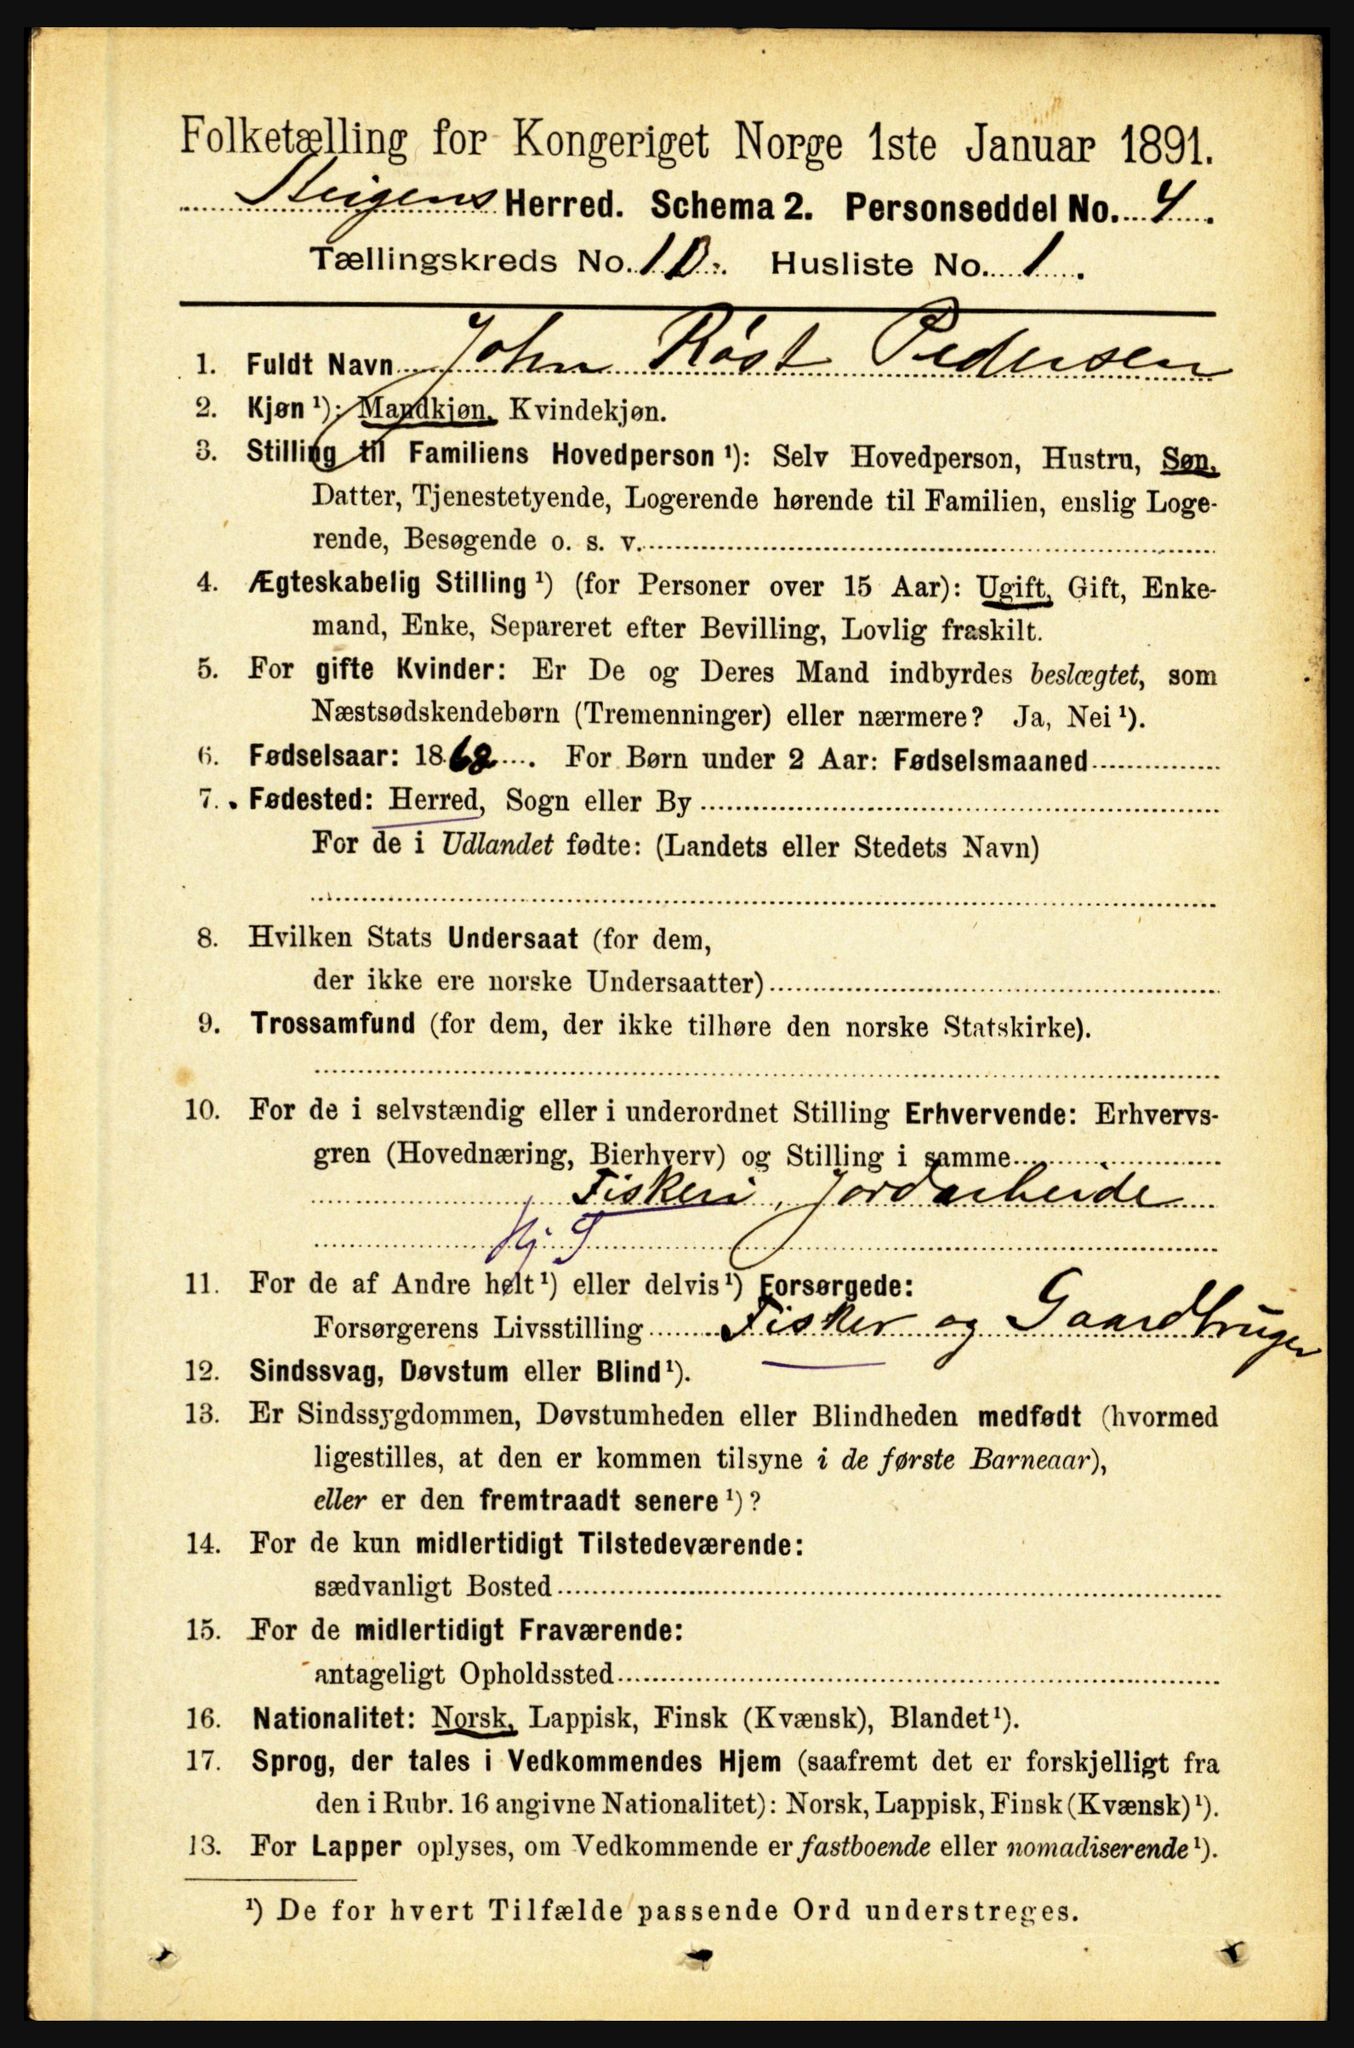 Folketælling for Kongeriget Norge 1ste Januar 1891.
Steigens Herred. Schema 2. Personseddel No. 4.
Tællingskreds No. 10. Husliste No. 1.
1. Fuldt Navn John Røst Pedersen
2. Kjøn ¹): Mandkjøn, Kvindekjøn.
3. Stilling til Familiens Hovedperson ¹): Selv Hovedperson, Hustru, Søn,
Datter, Tjenestetyende, Logerende hørende til Familien, enslig Loge-
rende, Besøgende o. s. v.
4. Ægteskabelig Stilling ¹) (for Personer over 15 Aar): Ugift, Gift, Enke-
mand, Enke, Separeret efter Bevilling, Lovlig fraskilt.
5. For gifte Kvinder: Er De og Deres Mand indbyrdes beslægtet, som
Næstsødskendebørn (Tremenninger) eller nærmere? Ja, Nei ¹).
6. Fødselsaar: 1862. For Børn under 2 Aar: Fødselsmaaned
7. Fødested: Herred, Sogn eller By
For de i Udlandet fødte: (Landets eller Stedets Navn)
8. Hvilken Stats Undersaat (for dem,
der ikke ere norske Undersaatter)
9. Trossamfund (for dem, der ikke tilhøre den norske Statskirke).
10. For de i selvstændig eller i underordnet Stilling Erhvervende: Erhvervs-
gren (Hovednæring, Bierhverv) og Stilling i samme
Fiskeri, Jordarbeide
11. For de af Andre helt ¹) eller delvis ¹) Forsørgede:
Forsørgerens Livsstilling Fisker og Gaardbruger
12. Sindssvag, Døvstum eller Blind ¹).
13. Er Sindssygdommen, Døvstumheden eller Blindheden medfødt (hvormed
ligestilles, at den er kommen tilsyne i de første Barneaar),
eller er den fremtraadt senere ¹)?
14. For de kun midlertidigt Tilstedeværende:
sædvanligt Bosted
15. For de midlertidigt Fraværende:
antageligt Opholdssted
16. Nationalitet: Norsk, Lappisk, Finsk (Kvænsk), Blandet ¹).
17. Sprog, der tales i Vedkommendes Hjem (saafremt det er forskjelligt fra
den i Rubr. 16 angivne Nationalitet): Norsk, Lappisk, Finsk (Kvænsk) ¹).
13. For Lapper oplyses, om Vedkommende er fastboende eller nomadiserende ¹).
¹) De for hvert Tilfælde passende Ord understreges.